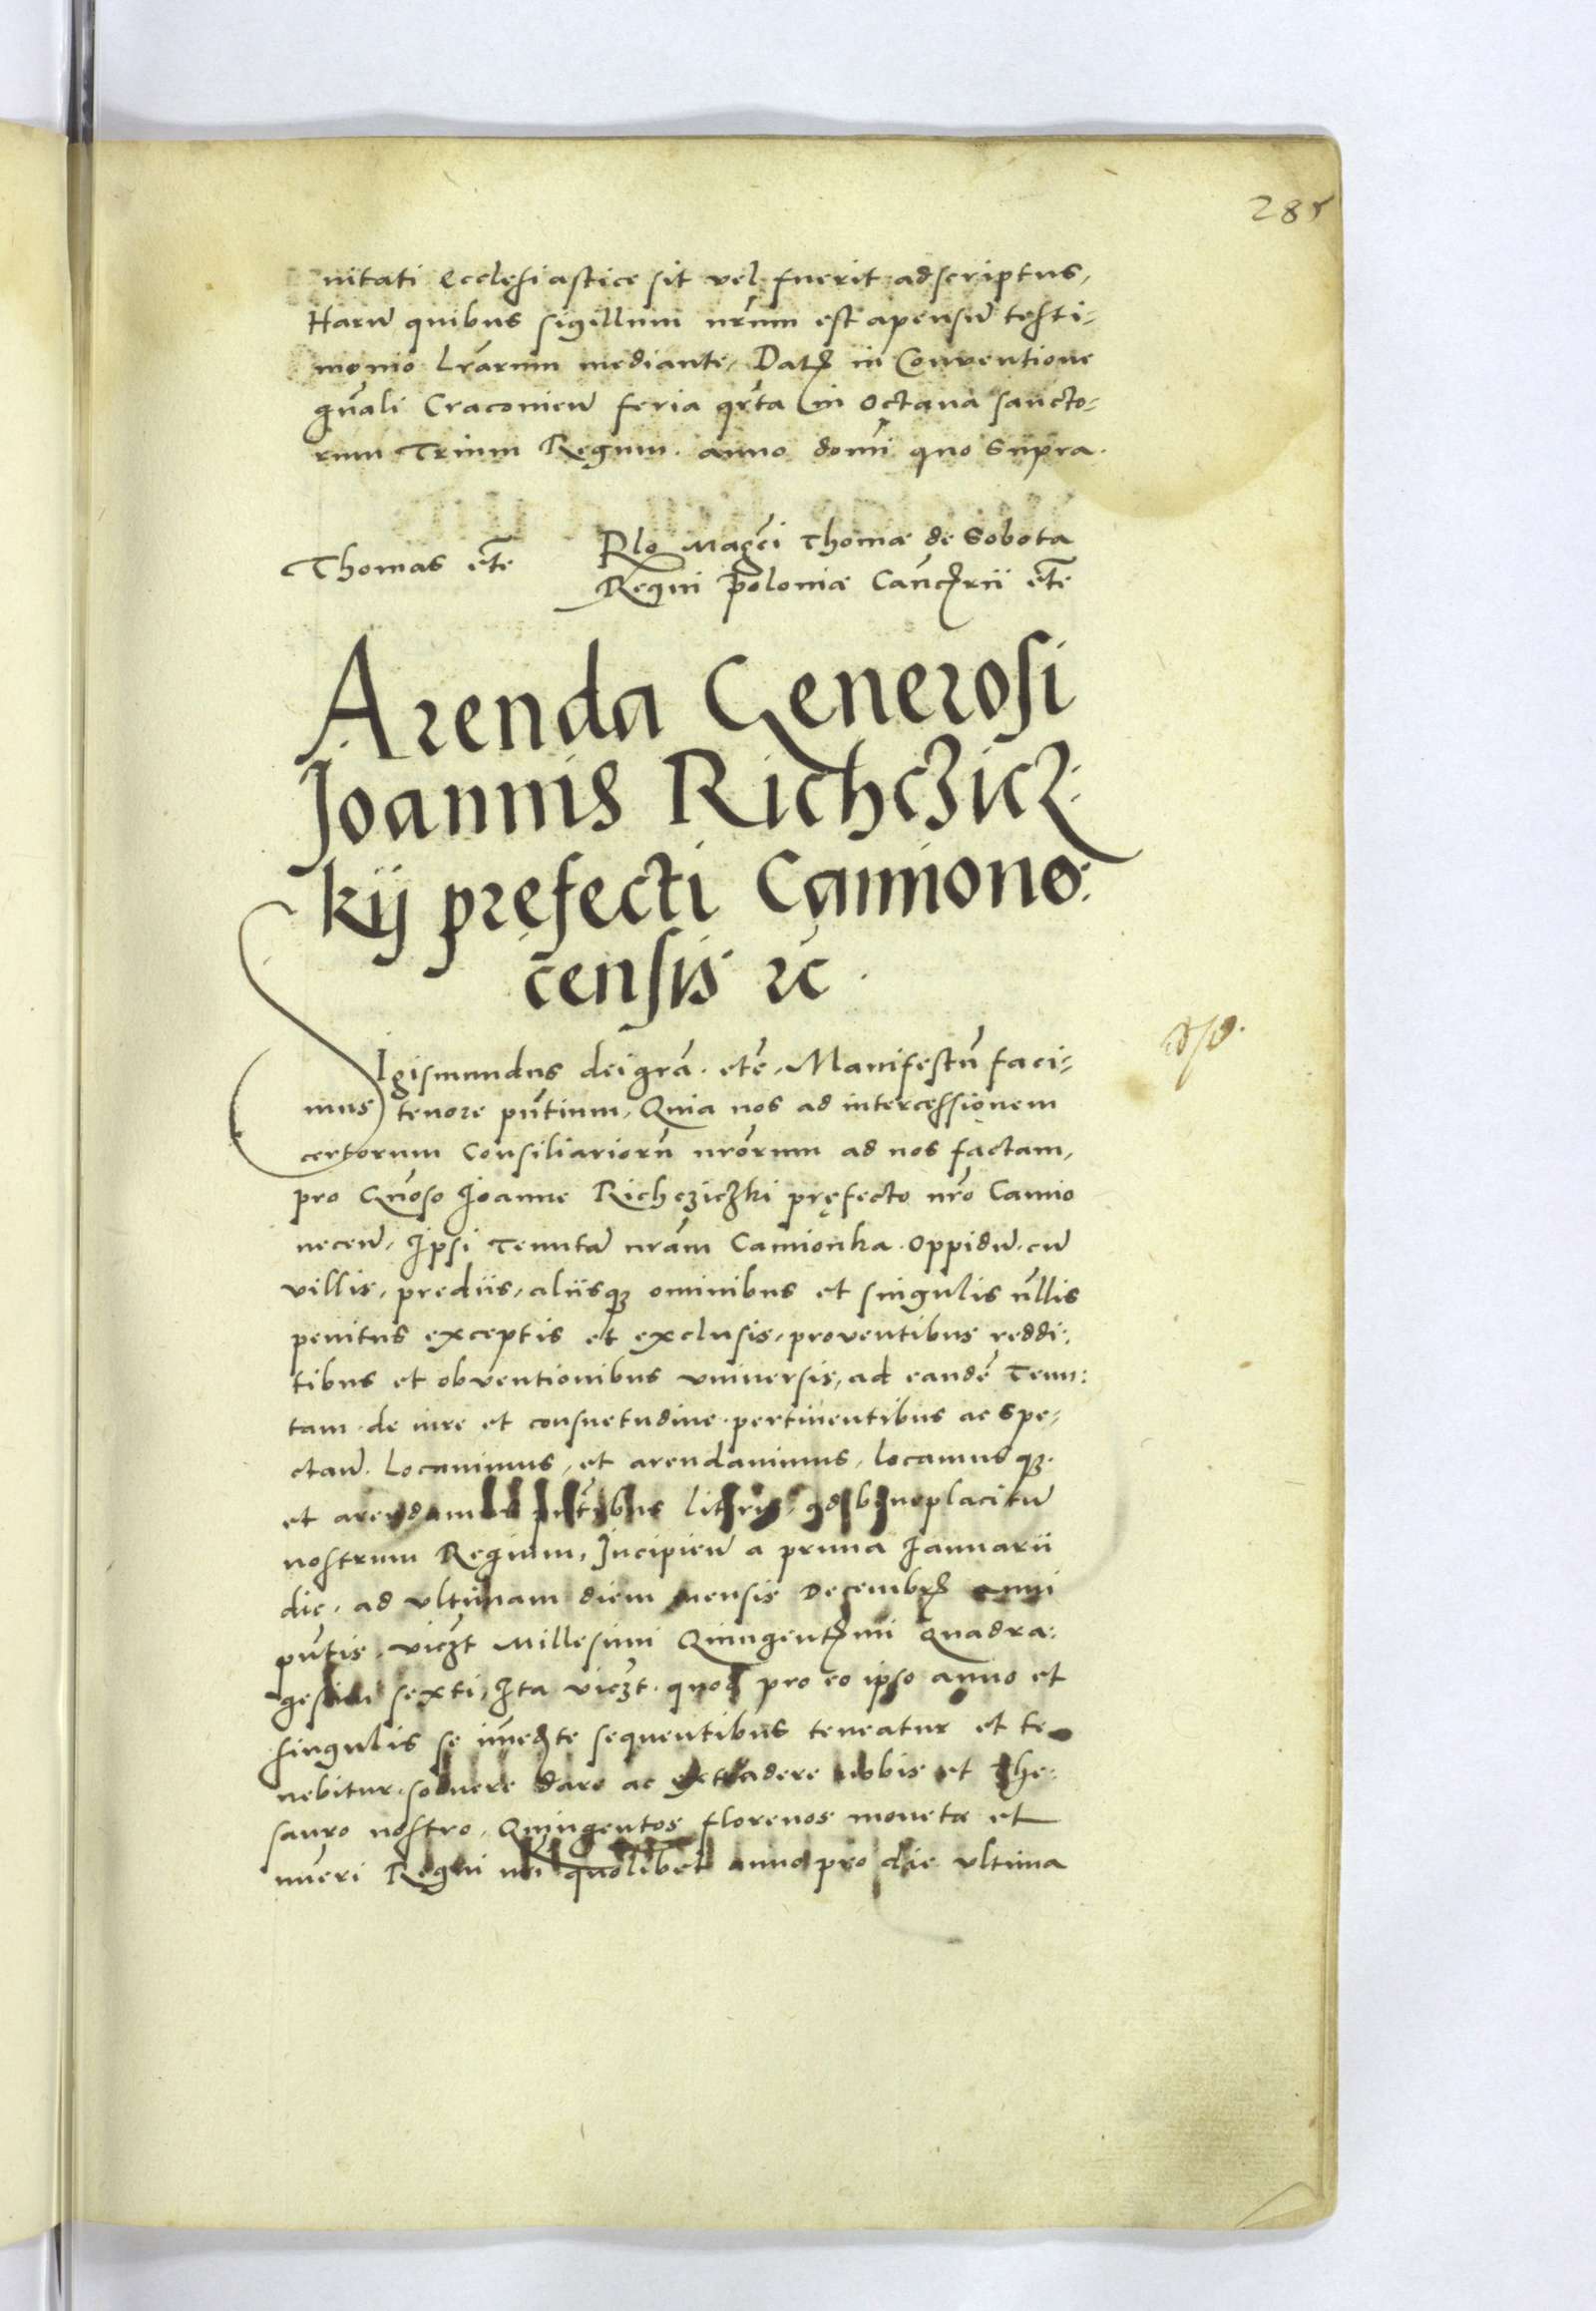 285
nitati Ecclesiastice sit vel fuerit adscriptus,
Harū quibus sigillum nr̄um est apensū testi-
monio lr̄arum mediante, Datȝ in Conventione
gn̄ali Cracovieñ feria qr̄ta in octava sancto-
rum Trium Regum. anno domī quo supra.
Thomas etc̄
Rlo Magc̄i Thomæ de Sobota
Regni Poloniæ Canc̄rii etc̄
Arenda Generosi
Joannis Richczicz-
kij prefecti Camiono:
censis ꝛc.
Sigismundus dei grā. etc̄. Manifestū faci-
mus tenore pn̄tium, Quia nos ad intercessionem
certorum Consiliariorū nrōrum ad nos factam,
pro Gn̄oso Joanne Richcziczki pręfecto nrō Camio
neceñ, Ipsi Tenutā nrām Camionka. oppidū. cū
villis, prediis, aliisqȝ omnibus et singulis nūllis
penitus exceptis et exclusis, proventibus reddi-
tibus et obventionibus universis, ad eandē Tenu:
tam. de iure et consuetudine. pertinentibus ac spe-
ctañ. locavimus, et arendavimus, locamusqȝ.
et arendamus pn̄tibus literis, ad beneplacitū
nostrum Regium, Incipień a prima Januarii
die, ad ultimam diem mensis Decembȝ anni
pn̄tis, viczt Millesimi Quingentȝmi Quadra:
gesimi sexti, Ita viczt. quod pro eo ipso anno et
singulis se immeȝte sequentibus teneatur et te
nebitur. solvere dare ac extradere nobis et The-
sauro nostro. Quingentos florenos monetæ et
nūeri Regni nr̄i quolibet anno pro die ultima